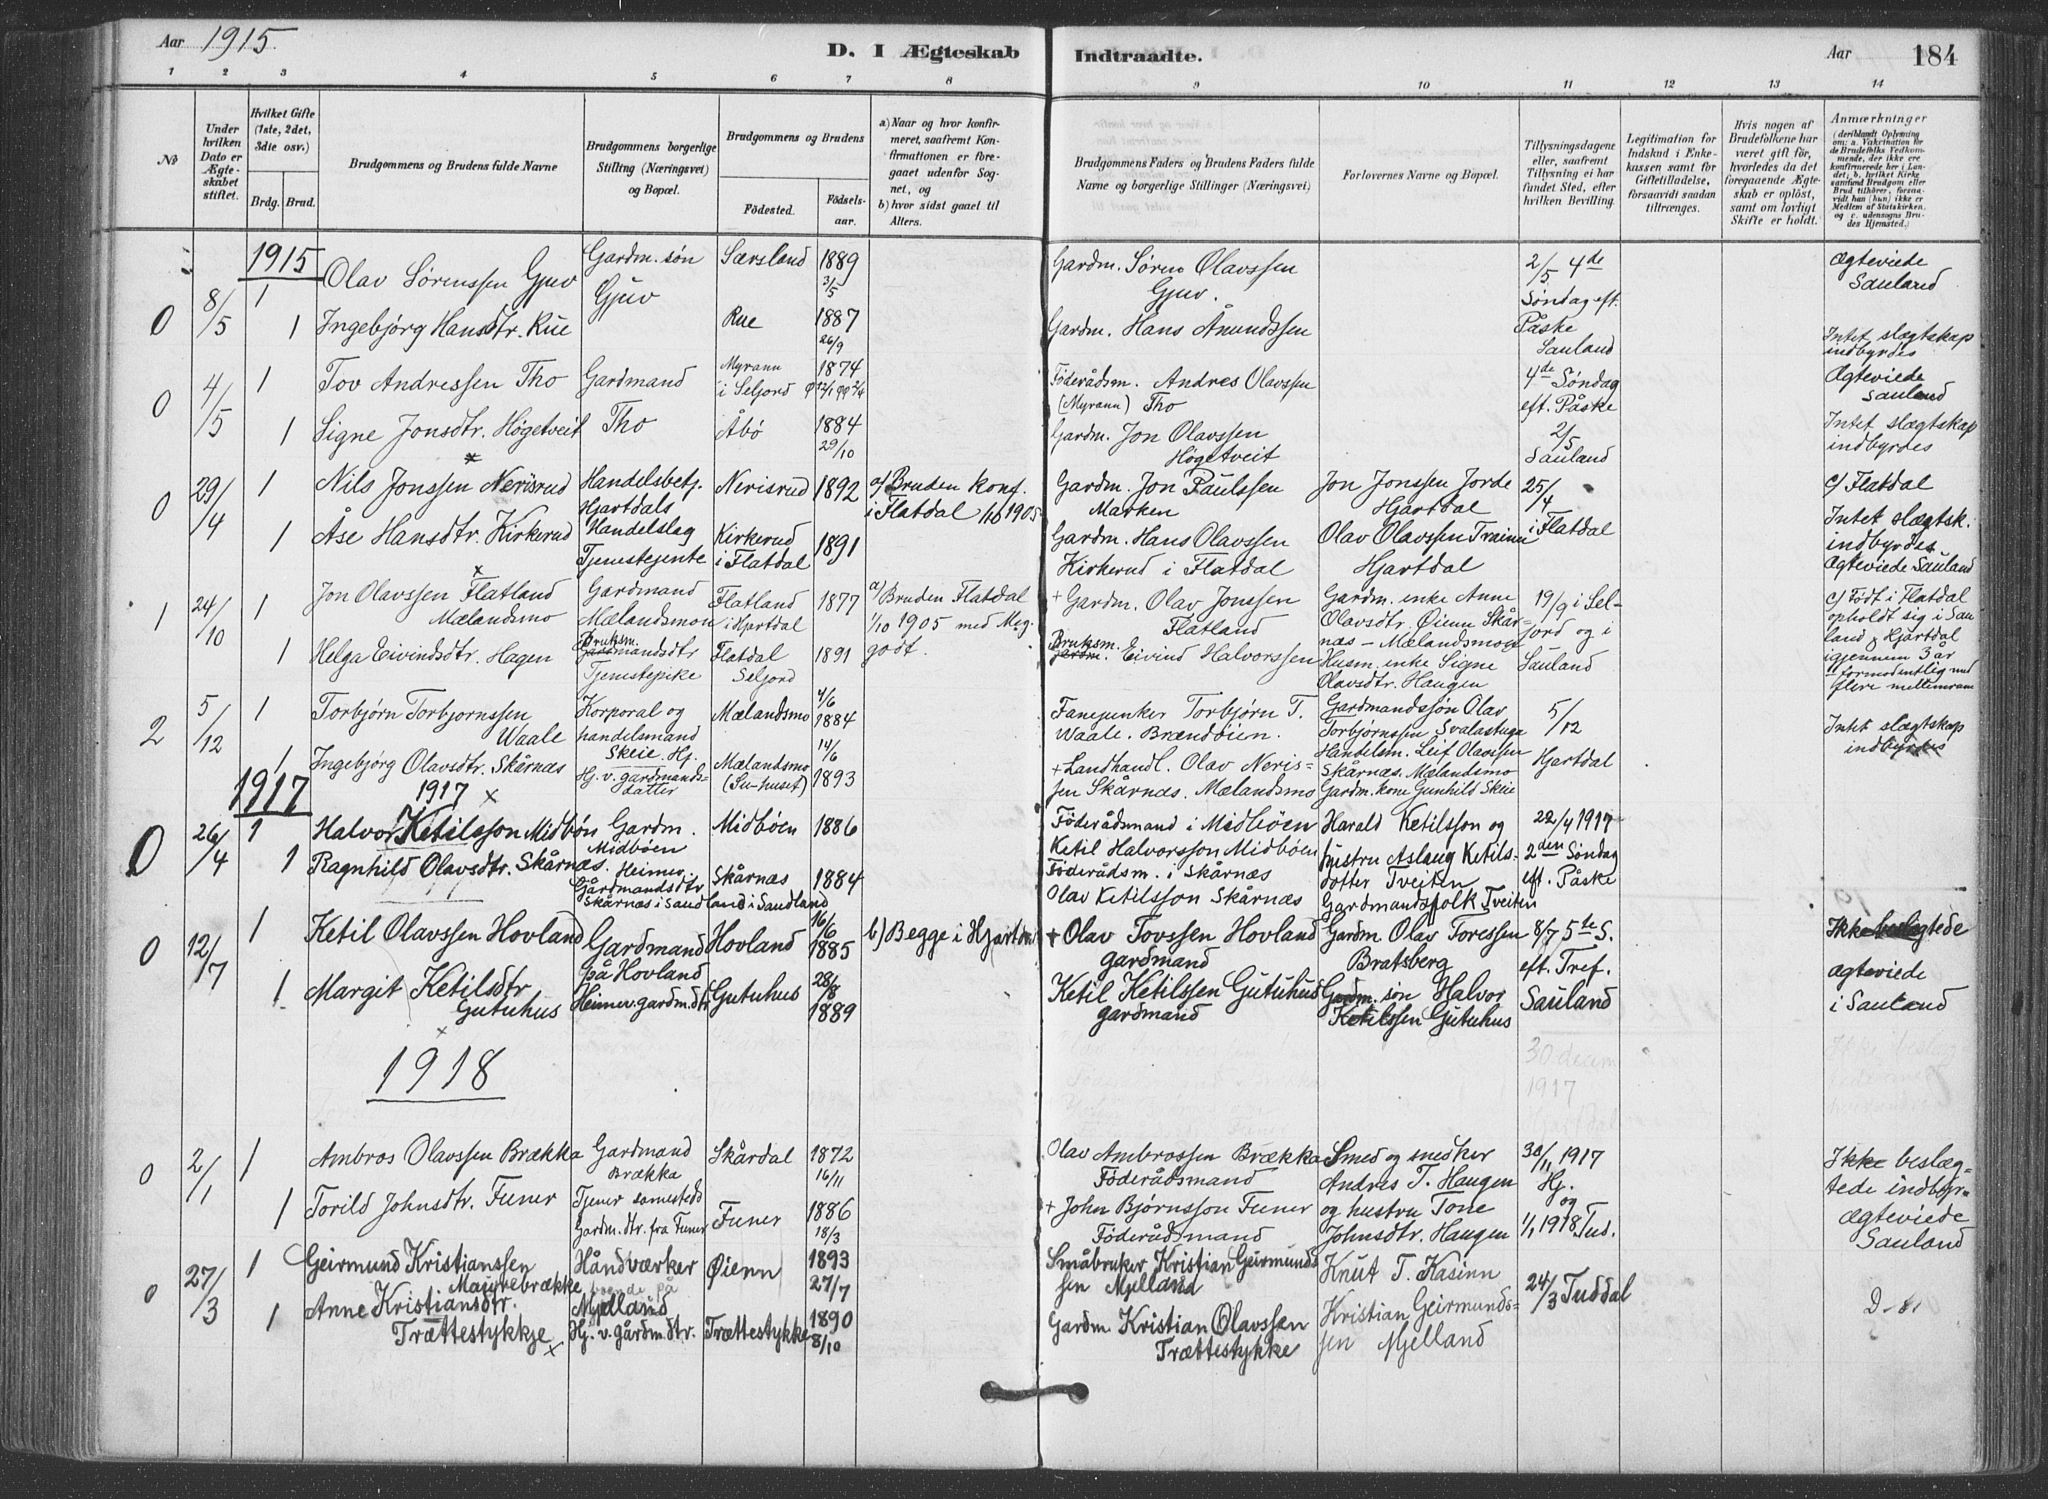 Aar 1915.
D. I Ægteskab Indtraadte.
Aar 184
1 2 3 4 5 6 7 8 9 10 11 12 13 14
No
Under hvilken Dato er Ægteskabet stiftet.
Hvilket Gifte (1ste, 2det, 3die osv.)
Brdg. Brud.
Brudgommens og Brudens fulde Navne
Brudgommens borgerlige Stilling (Næringsvei) og Bopæl.
Brudgommens og Brudens
Fødested.
Fødselsaar.
a) Naar og hvor konfirmeret, saafremt Konfirmationen er foregaaet udenfor Sognet, og
b) hvor sidst gaaet til Alters.
Brudgommens Faders og Brudens Faders fulde Navne og borgerlige Stillinger (Næringsvei)
Forlovernes Navne og Bopæl.
Tillysningsdagene eller, saafremt Tillysning ei har fundet Sted, efter hvilken Bevilling.
Legitimation for Indskud i Enkekassen samt for Giftetilladelse, forsaavidt saadan tiltrænges.
Hvis nogen af Brudefolkene har været gift før, hvorledes da det foregaaende Ægteskab er opløst, samt om lovligt Skifte er holdt.
Anmærkninger
(deriblandt Oplysning om: a. Vakcination for de Brudefolks Vedkommende, der ikke ere konfirmerede her i Landet; b. hvilket Kirkesamfund Brudgom eller Brud tilhører, forsaavidt han (hun) ikke er Medlem af Statskirken, og c. udensogns Brudes Hjemsted.)
1915
0 8/5 1 Olav Sørenssen Gjuv Gardm. søn Gjuv Særsland 1889 3/5 Gardm. Søren Olavssen Gjuv. 2/5 4de Søndag eft. Påske Sauland Ægteviede Sauland
1 Ingebjørg Hansdtr. Rue Rue 1887 26/9 Gardm. Hans Åmundssen Intet slægtskap indbyrdes
0 4/5 1 Tov Andressen Tho Gardmand Tho Myrann i Seljord 1874 Föderådsm. Andres Olavssen (Myrann) Tho 4de Søndag eft. Påske 2/5 Sauland Ægteviede Sauland
1 Signe Jonsdtr. Høgetveit Åbö 1884 29/10 Gardm. Jon Olavssen Høgetveit Intet slægtskap indbyrdes
0 29/4 1 Nils Jonssen Nerisrud Handelsbetj. Hjartdals Handelslag Nerisrud 1892 a/ Bruden konf. i Flatdal 1905 Gardm. Jon Paulssen Marken Jon Jonssen Jorde Hjartdal 25/4 i Flatdal c/ Flatdal
1 Åse Hansdtr. Kirkerud Tjenestejente Kirkerud i Flatdal 1891 Gardm. Hans Olavssen Kirkerud i Flatdal Olav Olavssen Hjartdal Intet slægtsk. indbyrdes Ægteviede Sauland
1 24/10 1 Jon Olavssen Flatland Mælandsmo Gardmand Mælandsmon Flatland i Hjartdal 1877 a/ Bruden Flatdal 1/10 1905 med Meg. godt. + Gardm. Olav Jonssen Flatland Gardm. enke Anne Olavsdtr. Øienn Skårnæs - Mælandsmoen 19/9 i Seljord og i Sauland c/ Født i Flatdal opholdt sig i Sauland & Hjartdal igjennem 3 år formodentlig med flere mellemrum
1 Helga Eivindsdtr. Hagen Bruksm. Gardmandsdtr Tjenestepike Flatdal Seljord 1891 Bruksm. Gardm. Eivind Halvorssen Husm. enke Signe Olavsdtr. Haugen
2 5/12 1 Torbjørn Torbjornssen Waale Korporal og handelsmand Skeie Hj. Mælandsmo 4/6 1884 Fanejunker Torbjørn T. Waale. Brændöien. Gardmandssøn Olav Torbjørnssen Svalastuga 5/12 Hjartdal Intet slægtskap indbyrdes
1 Ingebjørg Olavsdtr. Skårnæs Hj. v. gardmandsdatter Mælandsmo (Su-huset) 14/6 1893 + Landhandl. Olav Nerissen Skårnæs. Mælandsmo Handelsm. Leif Olavssen Skårnæs. Mælandsmo Gardm. kone Gunhild Skeie
1917 1917
0 26/4 1 Halvor Ketilsson Midbøn Gardm. Midböen Midböen 1886 Föderådsmand i Midböen Ketil Halvorsson Midböen Harald Ketilsson og hustru Aslaug Ketilsdotter Tveiten Gardmandsfolk Tveiten 22/4 1917 2den Søndag eft. Påske
1 Ragnhild Olavsdtr. Skårnæs. Heimev. Gårdmandsdtr Skårnæs i Saudland Skårnæs i Saudland 1884 Föderådsm. i Skårnæs Olav Ketilsson Skårnæs
0 12/7 1 Ketil Olavssen Hovland Gardmand på Hovland Hovland 16/6 1885 b) Begge i Hjartdal + Olav Tovssen Hovland gardmand Gardm. Olav Toressen Bratsberg 8/7 5te S. eft. Tref. Sauland Ikke beslegtede ægteviede i Sauland
1 Margit Ketilsdtr Gutuhus Heimev. gardm. dtr Gutuhus 28/8 1889 Ketil Ketilssen Gutuhus gardmand Gardm. søn Halvor Ketilssen Gutuhus
1918
0 2/1 1 Ambros Olavssen Brækka Gardmand Brækka Skårdal 1872 16/11 Olav Ambrossen Brækka Föderådsmand Smed og snedker Andres T. Haugen og hustru Tone Johnsdtr. Haugen 30/11 1917 Hj. og 1/1 1918. Tud. Ikke beslægtede indbyr- Ægteviede Sauland
1 Torild Johnsdtr. Funer Tjener samestedd Gardm. dtr. fra Funer Funer 1886 18/3 + John Bjørnsson Funer Föderådsmand
0 27/3 1 Geirmund Kristianssen Majorebrække Håndværker boende på Mjelland Øienn 1893 27/7 Småbruker Kristian Geirmundssen Mjelland Knut T. Kasinn 24/3 Tuddal D-s!
1 Anne Kristiansdtr. Trættestykkje Hj. v. gårdm. dtr. Trættestykke 1890 8/10 Gardm. Kristian Olavssen Trættestykke Kristian Geirmundssen Mjelland